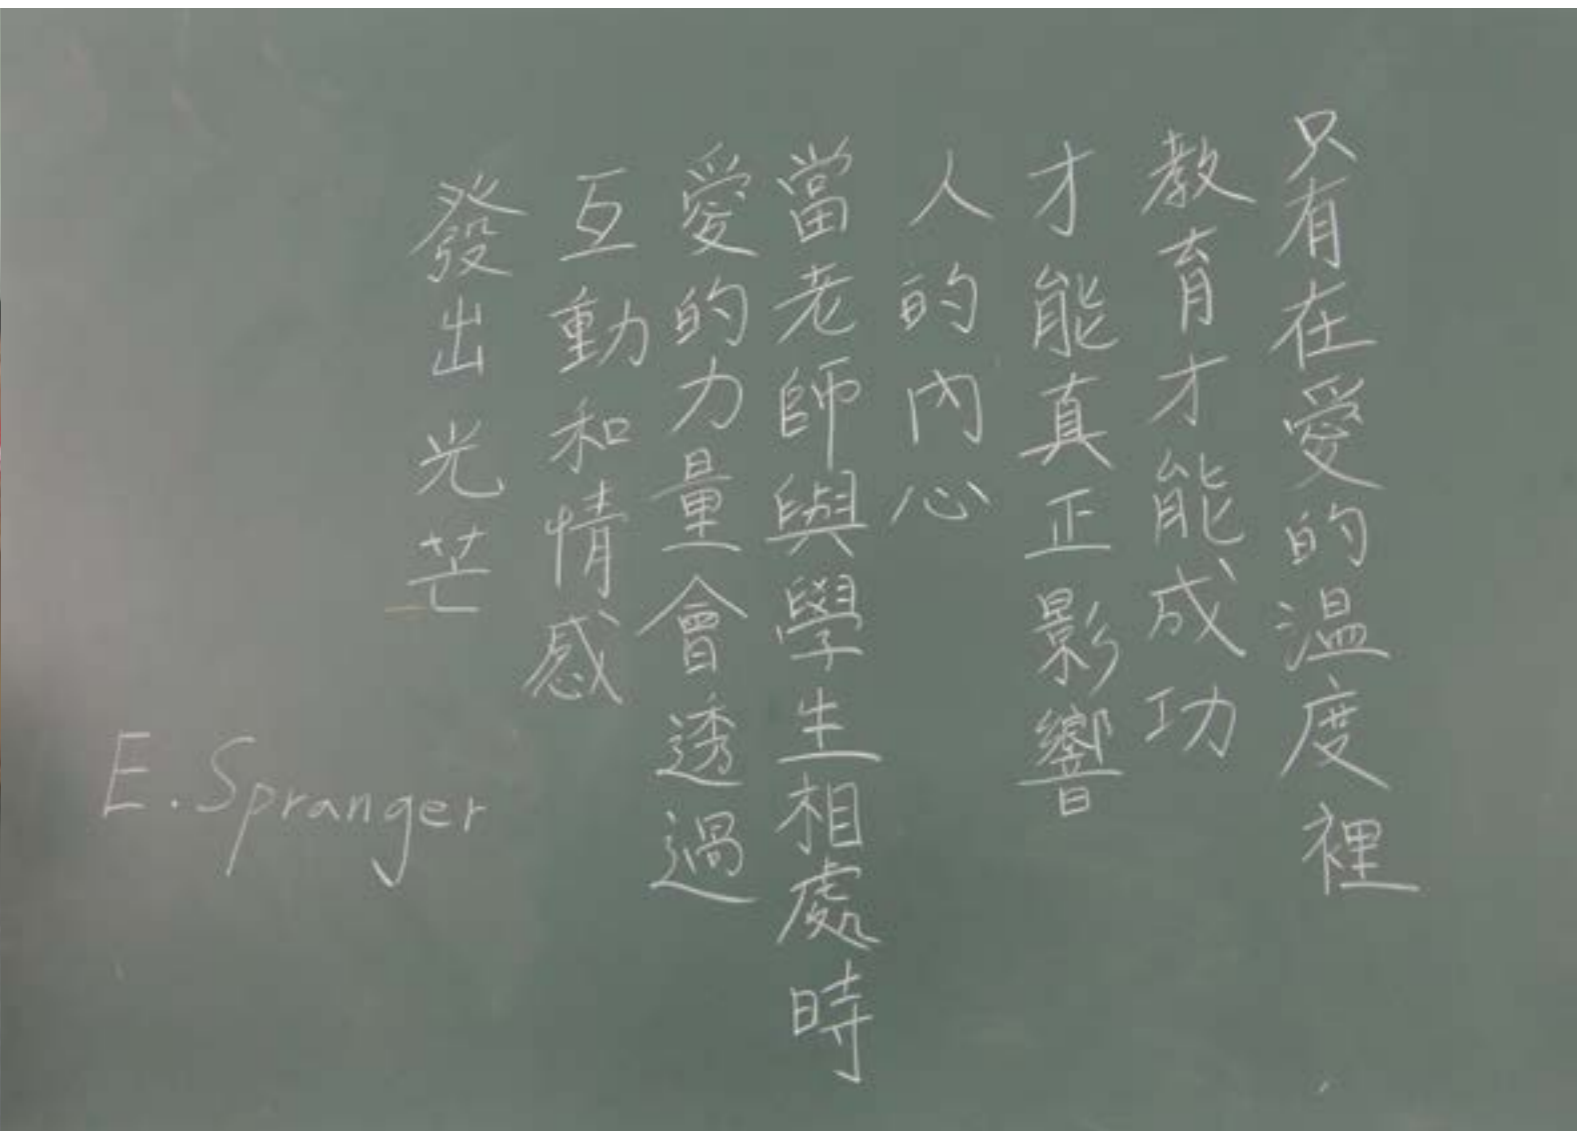 只有在愛的温度裡
教育才能成功
才能真正影響
人的內心
當老師與學生相處時
愛的力量會透過
互動和情感
發出光芒
E. Spranger